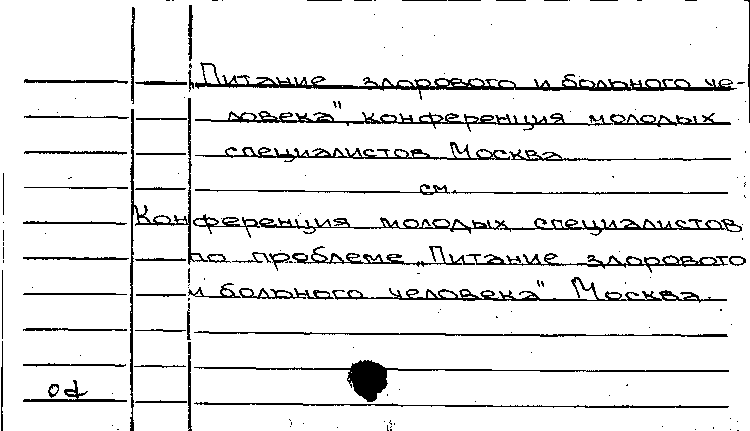 Питание здорового и больного че-
ловека", конференция молодых
специалистов Москва
см.
Конференция молодых специалистов
по проблеме „Питание здорового
и больного человека". Москва.
od